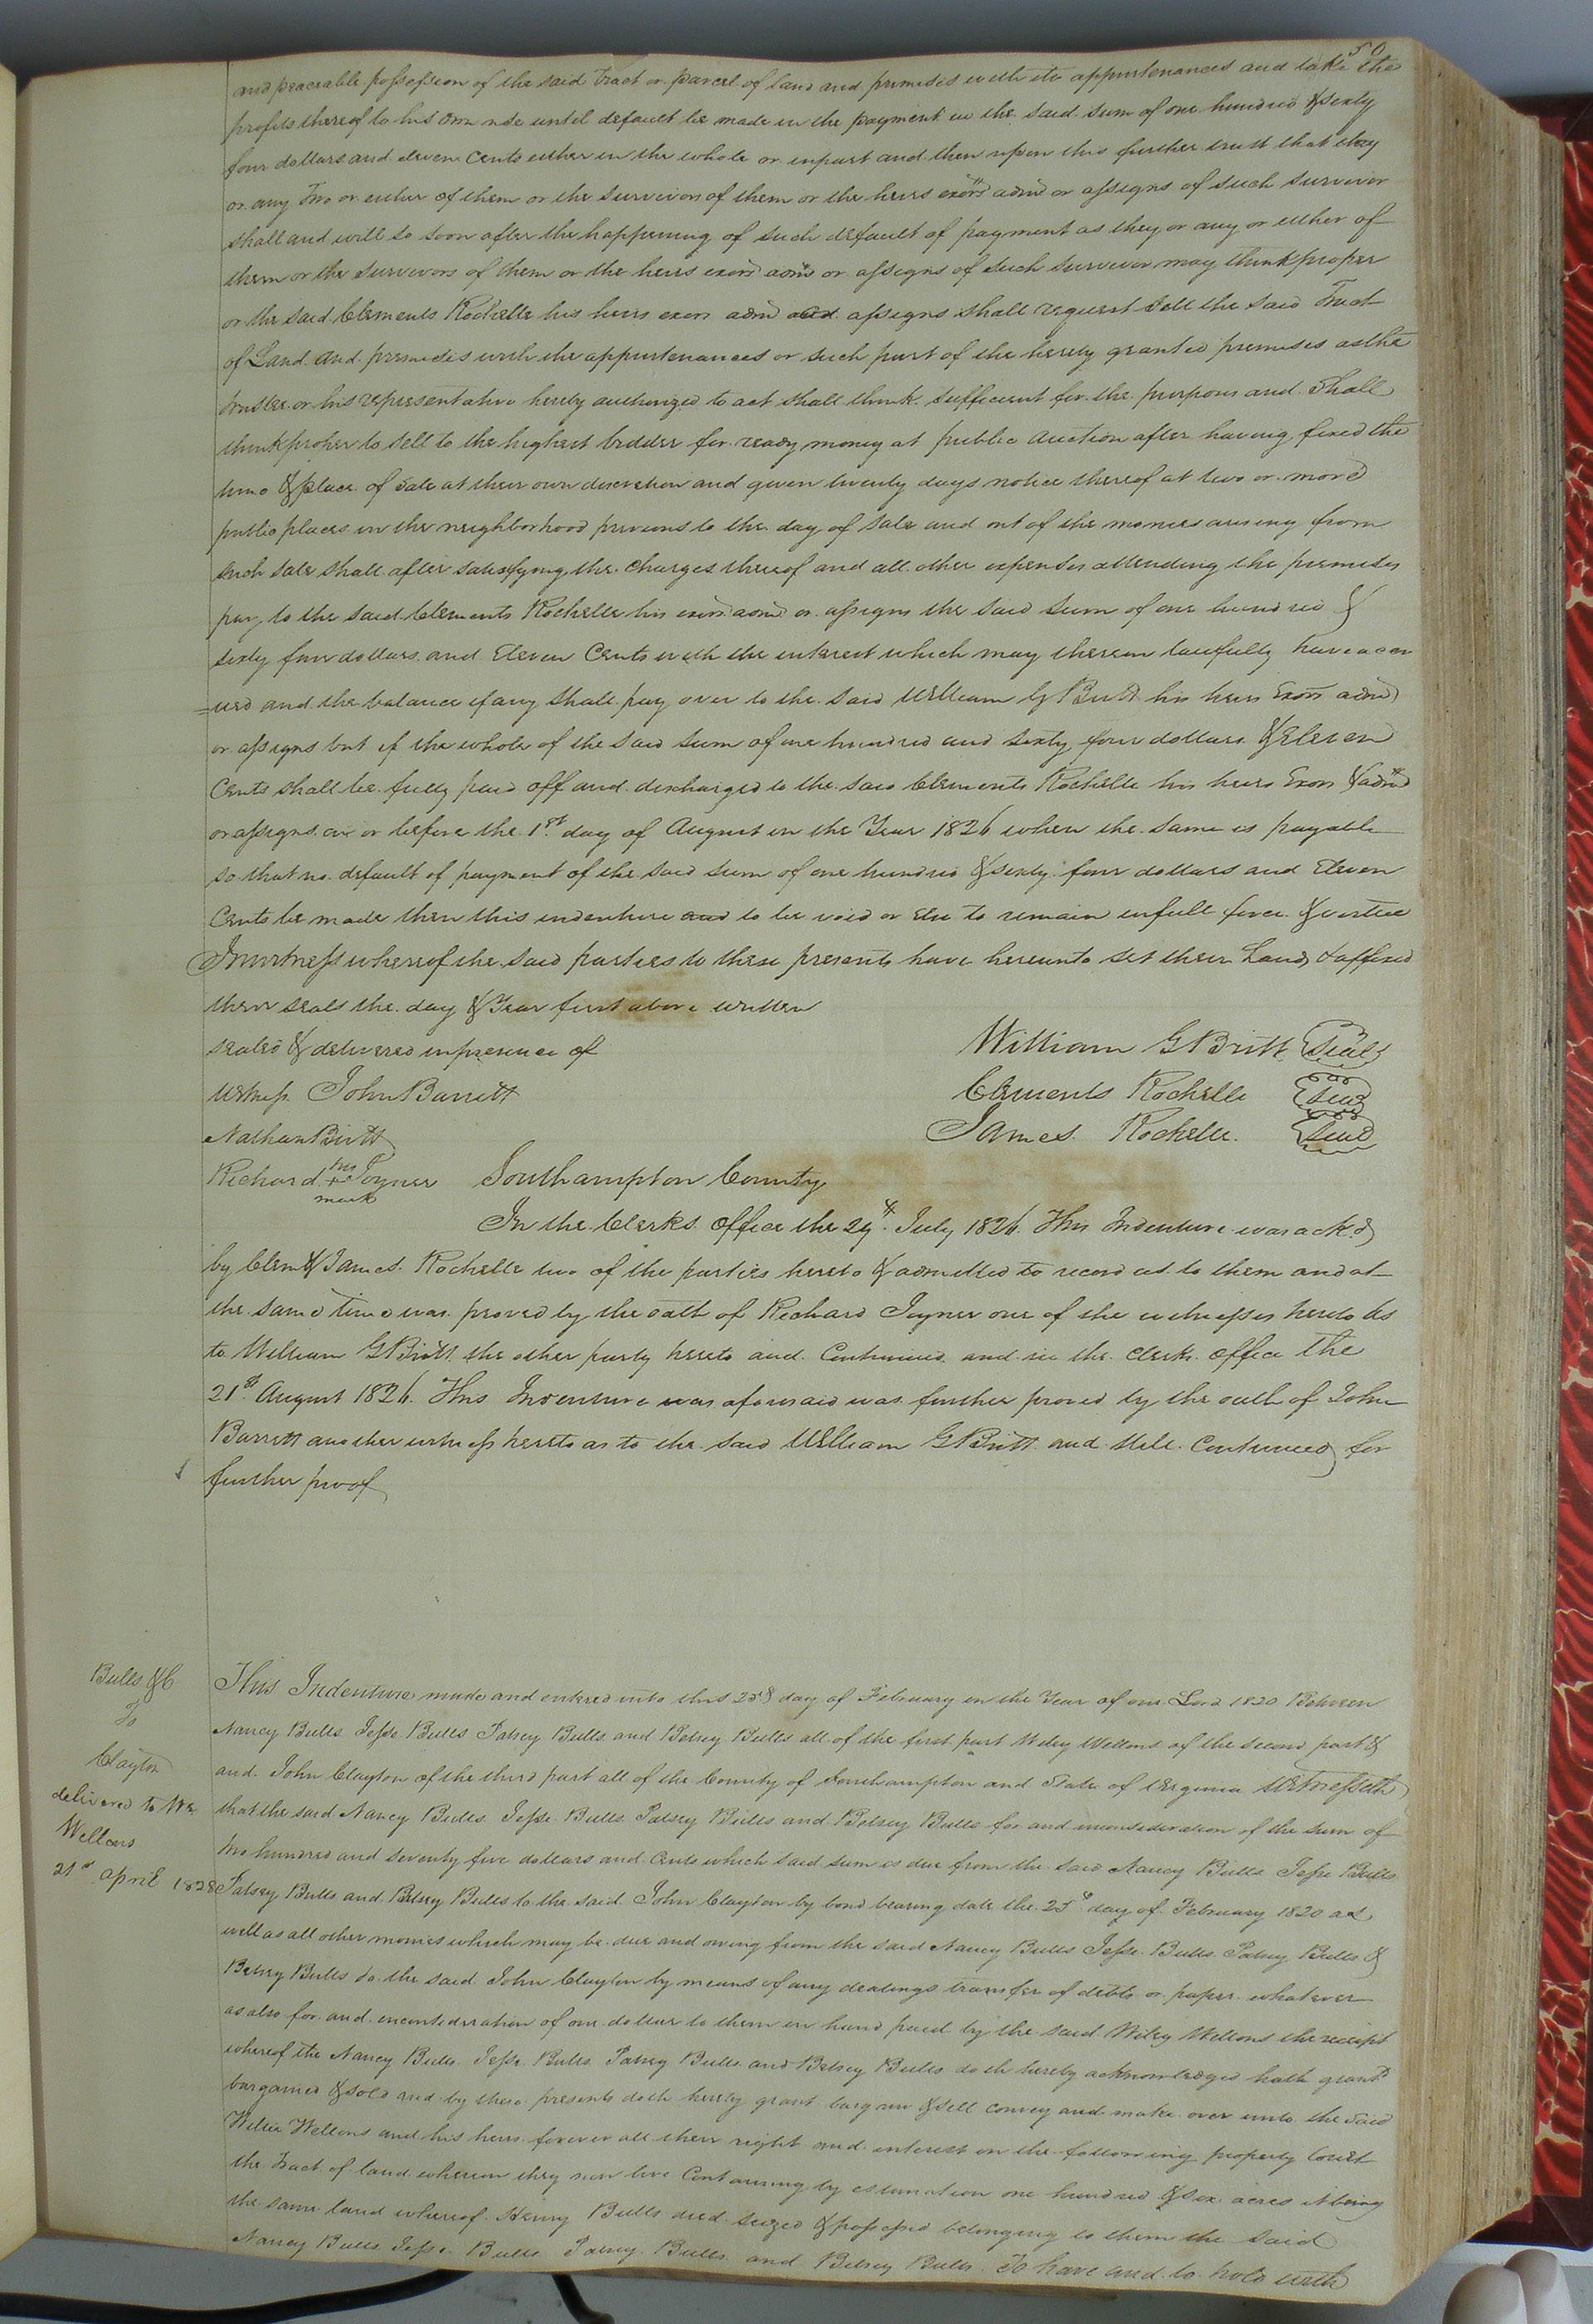 50
and peaceable possession of the said Tract or parcel of land and premises with its appurtenances and take the
profits thereof to his own use until default be made in the payment in the said sum of one hundred & sixty
four dollars and eleven Cents either in the whole or in part and then upon this further trust that they
or any Two or either of them or the survivors of them or the heirs exors admrs or assigns of such survivor
shall and will so soon after the happening of such default of payment as they or any or either of
them or the survivors of them or the heirs exors admrs or assigns of such survivor may think proper
or the said Clements Rochelle his heirs exors admrs and assigns shall request sell the said Tract
of Land and premises with the appurtenances or such part of the hereby granted premises as the
trustee or his representative hereby authorized to act shall think sufficient for the purposes and shall
think proper to sell to the highest bidder for ready money at public auction after having fixed the
time & place of sale at their own discretion and given twenty days notice thereof at two or more
public places in the neighborhood previous to the day of sale and out of the monies arising from
such sale shall after satisfying the charges thereof and all other expenses attending the premises
pay to the said Clements Rochelle his exors admrs or assigns the said sum of one hundred &
sixty four dollars and Eleven Cents with the interest which may thereon lawfully have accr
=ued and the balance if any shall pay over to the said William G Britt his heirs Exors admrs
or assigns but if the whole of the said sum of one hundred and sixty four dollars & Eleven
Cents shall be fully paid off and discharged to the said Clements Rochelle his heirs Exors & admrs
or assigns on or before the 1st day of August in the Year 1826 when the same is payable
so that no default of payment of the said sum of one hundred & sixty four dollars and Eleven
Cents be made then this indenture and to be void or Else to remain in full force & virtue
In witness whereof the said parties to these presents have hereunto set their hands & affixed
their seals the day & Year first above written
sealed & delivered in presence of
William G Britt seal
Witness John Barrett
Clements Rochelle seal
Nathan Britt
James Rochelle. seal
Richard his + mark Joyner
Southampton County
In the Clerks Office the 29th July 1826. This Indenture was ackd
by Clem & James Rochelle two of the parties hereto & admitted to record as to them and at
the same time was proved by the oath of Richard Joyner one of the witnesses hereto as
to William G Britt the other party hereto and Continued and in the Clerks office the
21st August 1826. This Indenture was aforesaid was further proved by the oath of John
Barrett another witness hereto as to the said William G Britt and still Continued for
further proof
Bulls &C
To
Clayton
delivered to Wm
Wellons
21st April 1828
This Indenture made and entered into this 25th day of February in the Year of our Lord 1820 Between
Nancy Bulls Jesse Bulls Patsey Bulls and Betsey Bulls all of the first part Wiley Wellons of the second part &
and John Clayton of the third part all of the County of Southampton and State of Virginia Witnesseth
that the said Nancy Bulls Jesse Bulls Patsey Bulls and Betsey Bulls for and in consideration of the sum of
two hundred and seventy five dollars and Cents which said sum is due from the said Nancy Bulls Jesse Bulls
Patsey Bulls and Betsey Bulls to the said John Clayton by bond bearing date the 25th day of February 1820 as
well as all other monies which may be due and owing from the said Nancy Bulls Jesse Bulls Patsey Bulls &
Betsey Bulls to the said John Clayton by means of any dealings transfer of debts or paper whatever
as also for and in consideration of one dollar to them in hand paid by the said Wiley Wellons the receipt
whereof the Nancy Bulls Jesse Bulls Patsey Bulls and Betsey Bulls doth hereby acknowledged hath grantd
bargained & sold and by these presents doth hereby grant bargain & sell convey and make over unto the said
Willie Wellons and his heirs forever all their right and interest in the following property towit
the Tract of land whereon they now live Containing by estimation one hundred & six acres it being
the same land whereof Henry Bulls died seized & possessed belonging to them the said
Nancy Bulls Jesse Bulls Patsey Bulls and Betsey Bulls To have and to hold with